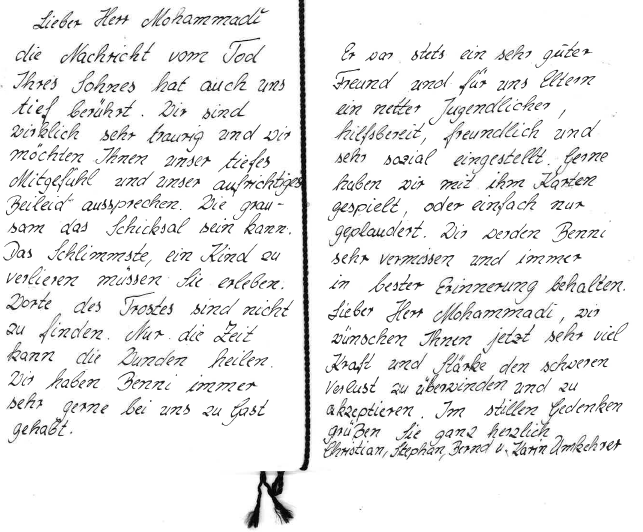 Lieber Herr Mohammadi
die Nachricht vom Tod
Ihres Sohnes hat auch uns
tief berührt. Wir sind
wirklich sehr traurig und wir
möchten Ihnen unser tiefes
Mitgefühl und unser aufrichtiges
Beileid aussprechen. Wie grau-
sam das Schicksal sein kann.
Das Schlimmste, ein Kind zu
verlieren müssen Sie erleben.
Worte des Trostes sind nicht
zu finden. Nur die Zeit
kann die Wunden heilen.
Wir haben Benni immer
sehr gerne bei uns zu Gast
gehabt.
Er war stets ein sehr guter
Freund und für uns Eltern
ein netter Jugendlicher,
hilfsbereit, freundlich und
sehr sozial eingestellt. Gerne
haben wir mit ihm Karten
gespielt, oder einfach nur
geplaudert. Wir werden Benni
sehr vermissen und immer
in bester Erinnerung behalten.
Lieber Herr Mohammadi, wir
wünschen Ihnen jetzt sehr viel
Kraft und Stärke, den schweren
Verlust zu überwinden und zu
akzeptieren. Im stillen Gedenken
grüßen Sie ganz herzlich
Christian, Stephan, Bernd u. Karin Umkehrer